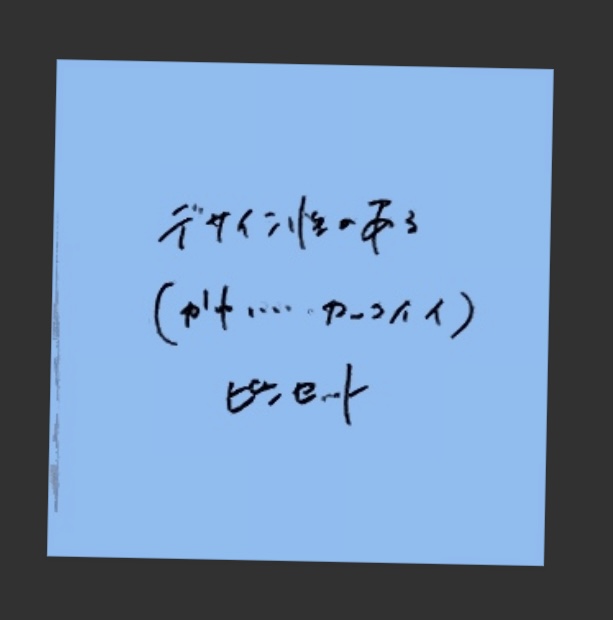 デザイン性のある
(かわいい・カッコイイ)
ピンセット